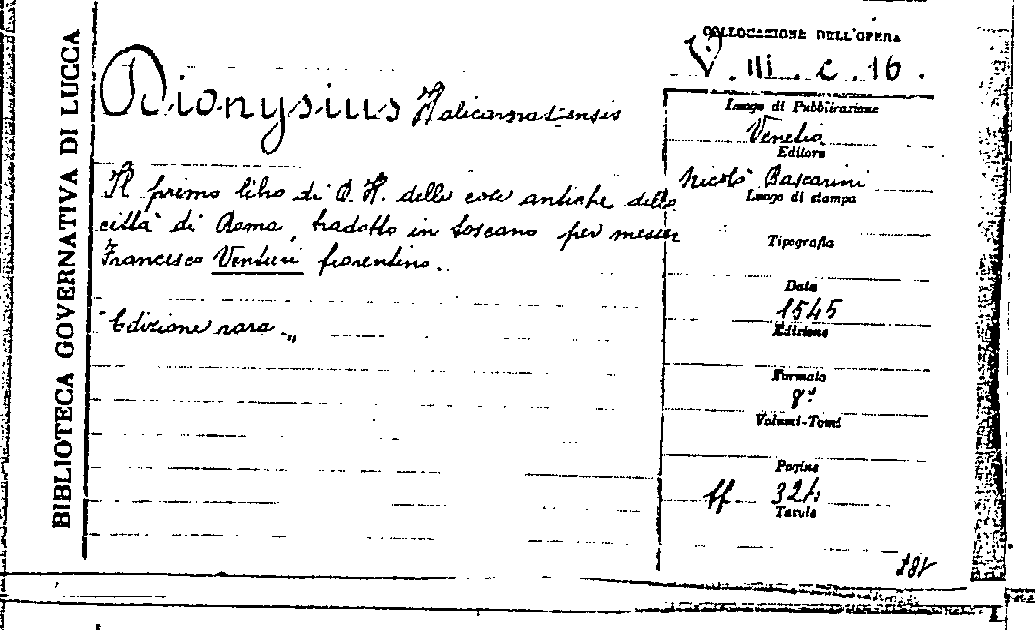 BIBLIOTECA GOVERNATIVA DI LUCCA
COLLOCAZIONE DELL'OPERA
V. III. c. 16.
Dionysius Halicarnatensis
Il primo libro di D. H. delle cose antiche della
città di Roma, tradotto in toscano per messer
Francesco Venturi fiorentino.
"Edizione rara"
Luogo di Pubblicazione
Venetia
Editore
Nicolò Bascarini
Luogo di stampa
Tipografia
Data
1545
Edizione
Formato
8°
Volumi-Tomi
Pagine
ff. 324
Tavole